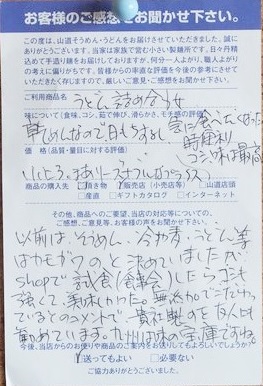 お客様のご感想をお聞かせ下さい。
この度は、山道そうめん・うどんをお届けさせていただきました。誠に
ありがとうございます。当家は家族で営む小さい製麺所です。日々丹精
込めて手造り麺をお届けしておりますが、何分一人よがり、職人よがり
の考えに偏りがちです。皆様からの率直な評価を今後の参考にさせて
いただきたく存じますので、厳しいご意見をお寄せください。
ご利用商品名
うどん詰め合せ
味について(食味、コシ、茹で伸び、滑らかさ、モチ感の評価)
乾めんなので日もちするし 急に食べたくなった
時便利
コシ 味は最高
価格(品質・量目に対する評価)
商品の購入先 頂き物 販売店(小売店等) 山道店頭
産直 ギフトカタログ インターネット
その他、商品へのご要望、当店の対応等についての、
ご感想、ご意見等、お客様の声をお聞かせ下さい。
以前は、そうめん・冷や麦・うどん等
はカモ井のと決めていましたが
shopで試食
強くて、美味しかった。無添加でこだわっ
ているとのコメントで 貴社製のを友人にも
勧めています。九州は味の宝庫ですね。
今後、当店からのお便りや商品のご案内をお送りしてもよろしいでしょうか?
送ってもよい 必要ない
ご協力ありがとうございました。